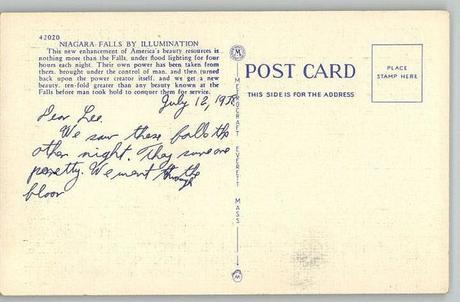 42020
NIAGARA FALLS BY ILLUMINATION
This new enhancement of America's beauty resources is
nothing more than the Falls, under flood lighting for four
hours each night. Their own power has been taken from
them, brought under the control of man, and then turned
back upon the power creator itself, and we get a new
beauty, ten-fold greater than any beauty known at the
Falls before man took hold to conquer them for service.
July 12, 1938
Dear Lee.
We saw these falls the
other night. They sure are
pretty. We went through the
METROCRAFT EVERETT MASS
POST CARD
THIS SIDE IS FOR THE ADDRESS
PLACE
STAMP HERE